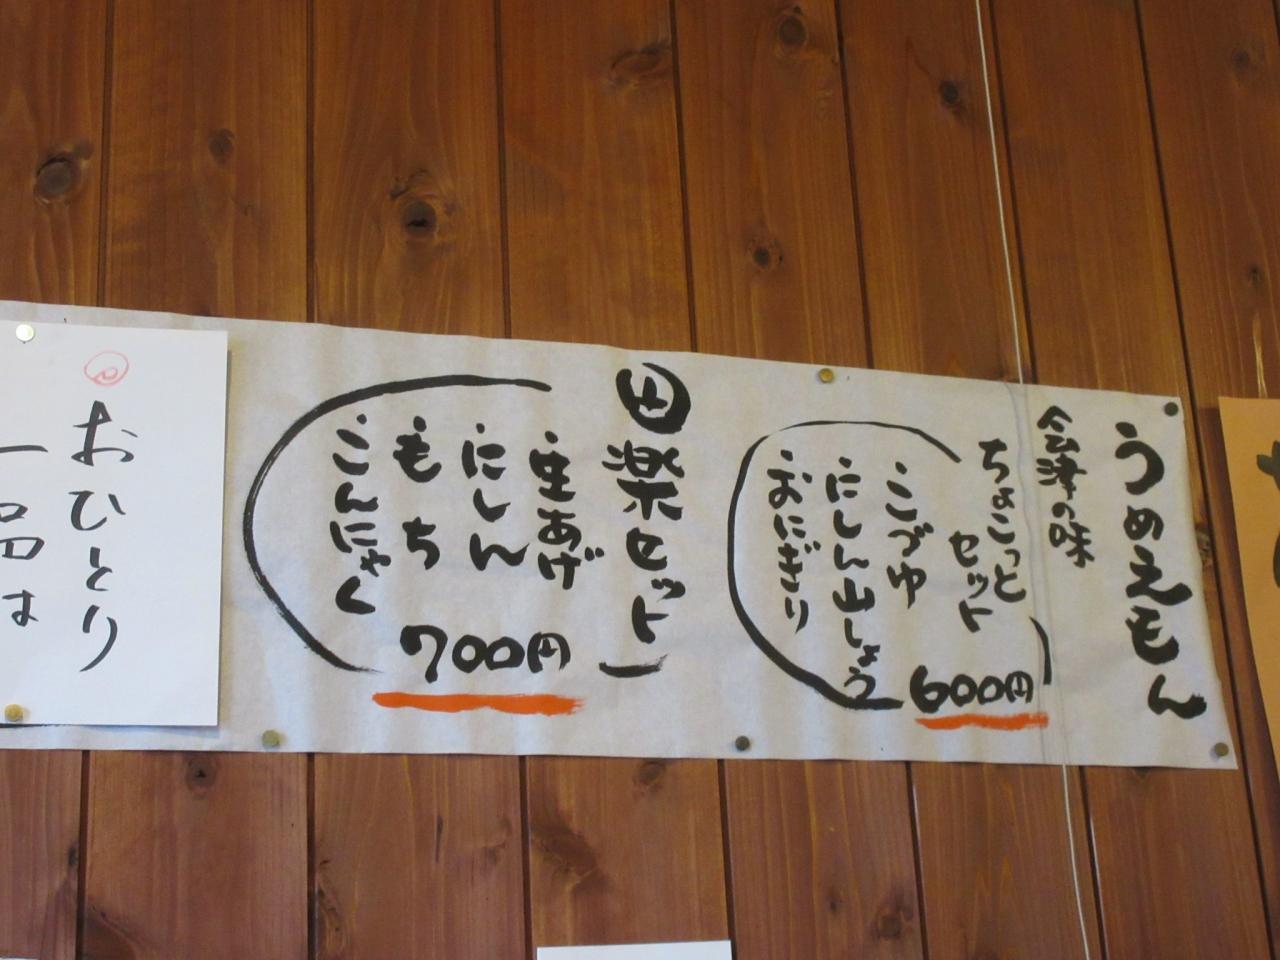 うめえもん
会津の味
ちょこっと
セット
こづゆ
にしん山しょう
おにぎり
600円
田楽セット
生あげ
にしん
もち
こんにゃく
700円
おひとり
一品は